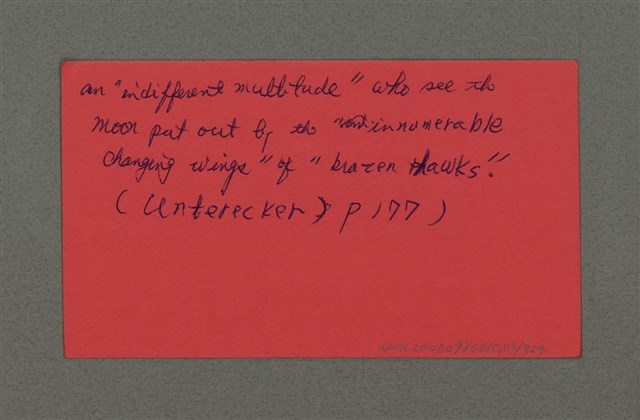 an "indifferent multitude" who see the
moon put out by the "innumerable
changing wings" of "brazen hawks."
(Unterecker, p 177)